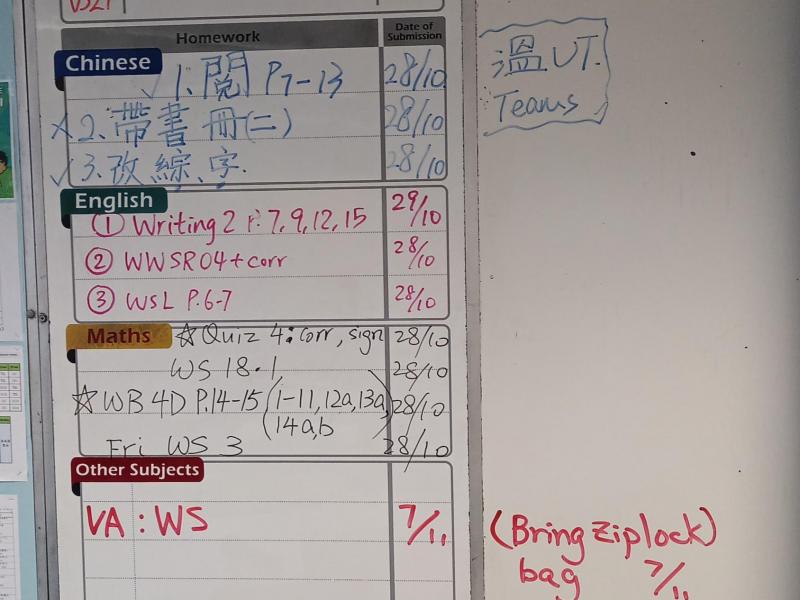 Homework
Date of Submission
Chinese
✓ 1. 閱 P7-13 28/10
× 2. 帶書冊(二) 28/10
✓ 3. 改綜、字. 28/10
English
① Writing 2 P. 7, 9, 12, 15 29/10
② WWSR04 + corr 28/10
③ WSL P.6-7 28/10
Maths
☆ Quiz 4: corr, sign 28/10
WS 18.1, 28/10
☆ WB 4D P.14-15 (1-11, 12a, 13a, 28/10
14a,b)
Fri WS 3 28/10
Other Subjects
VA : WS 7/11
溫 UT.
Teams
(Bring ziplock)
bag 7/11